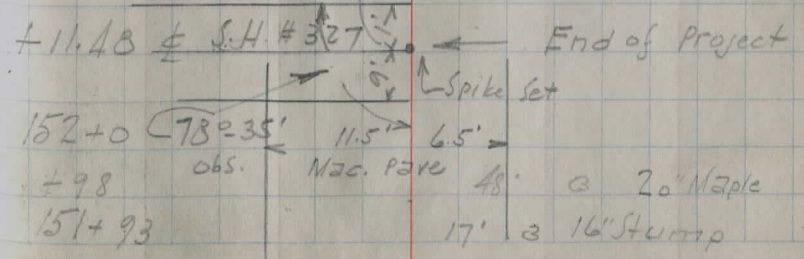 +11.48 ℄ S.H. #327 11' End of Project
9' Spike Set
152+0 78°-35' 11.5' 6.5'
obs. Mac. Pave
+98 48' 20" Maple
151+93 17' 16" Stump